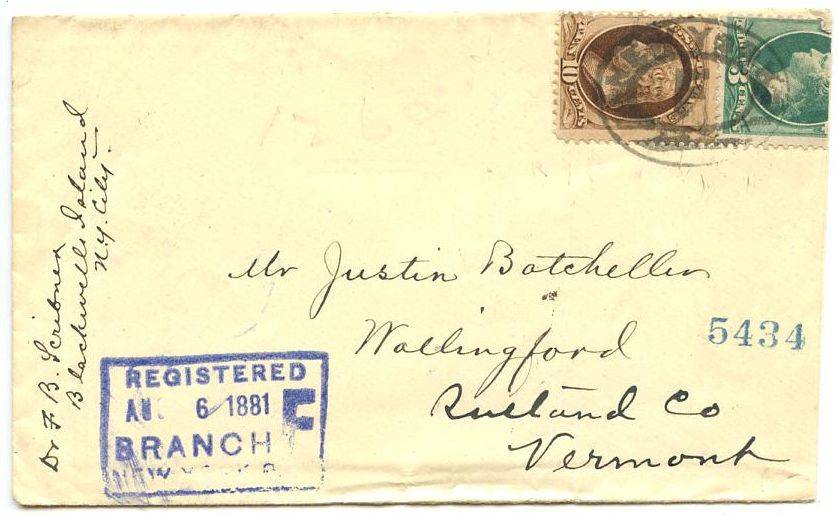 Dr F. B. Scribner
Blackwells Island
N.Y. City.
10 CENTS
3
Mr Justin Batcheller
Wallingford
Rutland Co
Vermont
5434
REGISTERED
AU 6 1881
BRANCH F